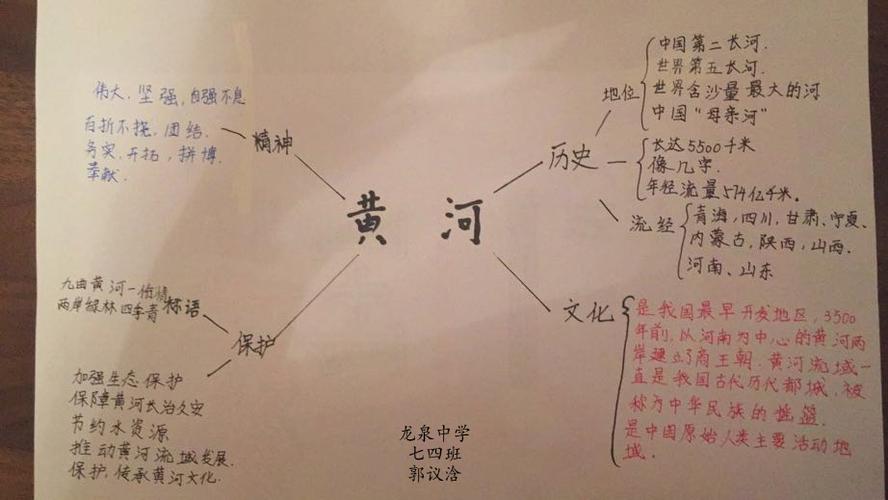 黄河
精神
伟大、坚强,自强不息
百折不挠,团结、
务实、开拓,拼博、
奉献.
历史
地位
中国第二长河.
世界第五长河.
世界含沙量最大的河
中国“母亲河”
长达5500千米
像几字.
年经流量574亿千米。
流经
青海,四川,甘肃、宁夏、
内蒙古,陕西,山西.
河南、山东
文化
是我国最早开发地区,3500
年前,以河南为中心的黄河两
岸建立了商王朝.黄河流域一
直是我国古代历代都城,被
称为中华民族的摇篮.
是中国原始人类主要活动地
域.
保护
标语
九曲黄河一
两岸绿林四季青
加强生态保护
保障黄河长治久安
节约水资源
推动黄河流域发展.
保护,传承黄河文化.
龙泉中学
七四班
郭议浛